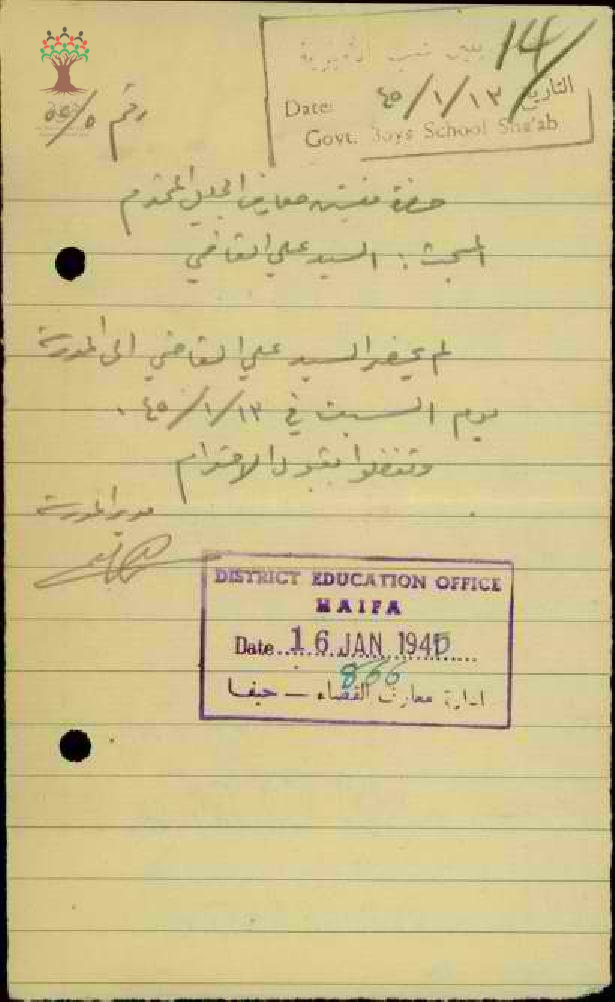 14
التاريخ ١٣ / ١ / ٤٥
Date:
Govt. Boys School Sha'ab
رقم
حضرة مفتش معارف الجليل المحترم
المبحث : السيد علي القاضي
لم يحضر السيد علي القاضي الى المدرسة
يوم السبت في ١٣ / ١ / ٤٥ .
وتفضلوا بقبول الاحترام
مدير المدرسة
DISTRICT EDUCATION OFFICE
HAIFA
Date 16 JAN 1945
866
ادارة معارف القضاء – حيفا